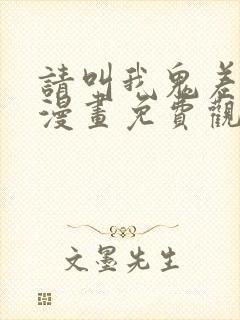 請叫我鬼差
漫畫免費觀
文墨先生